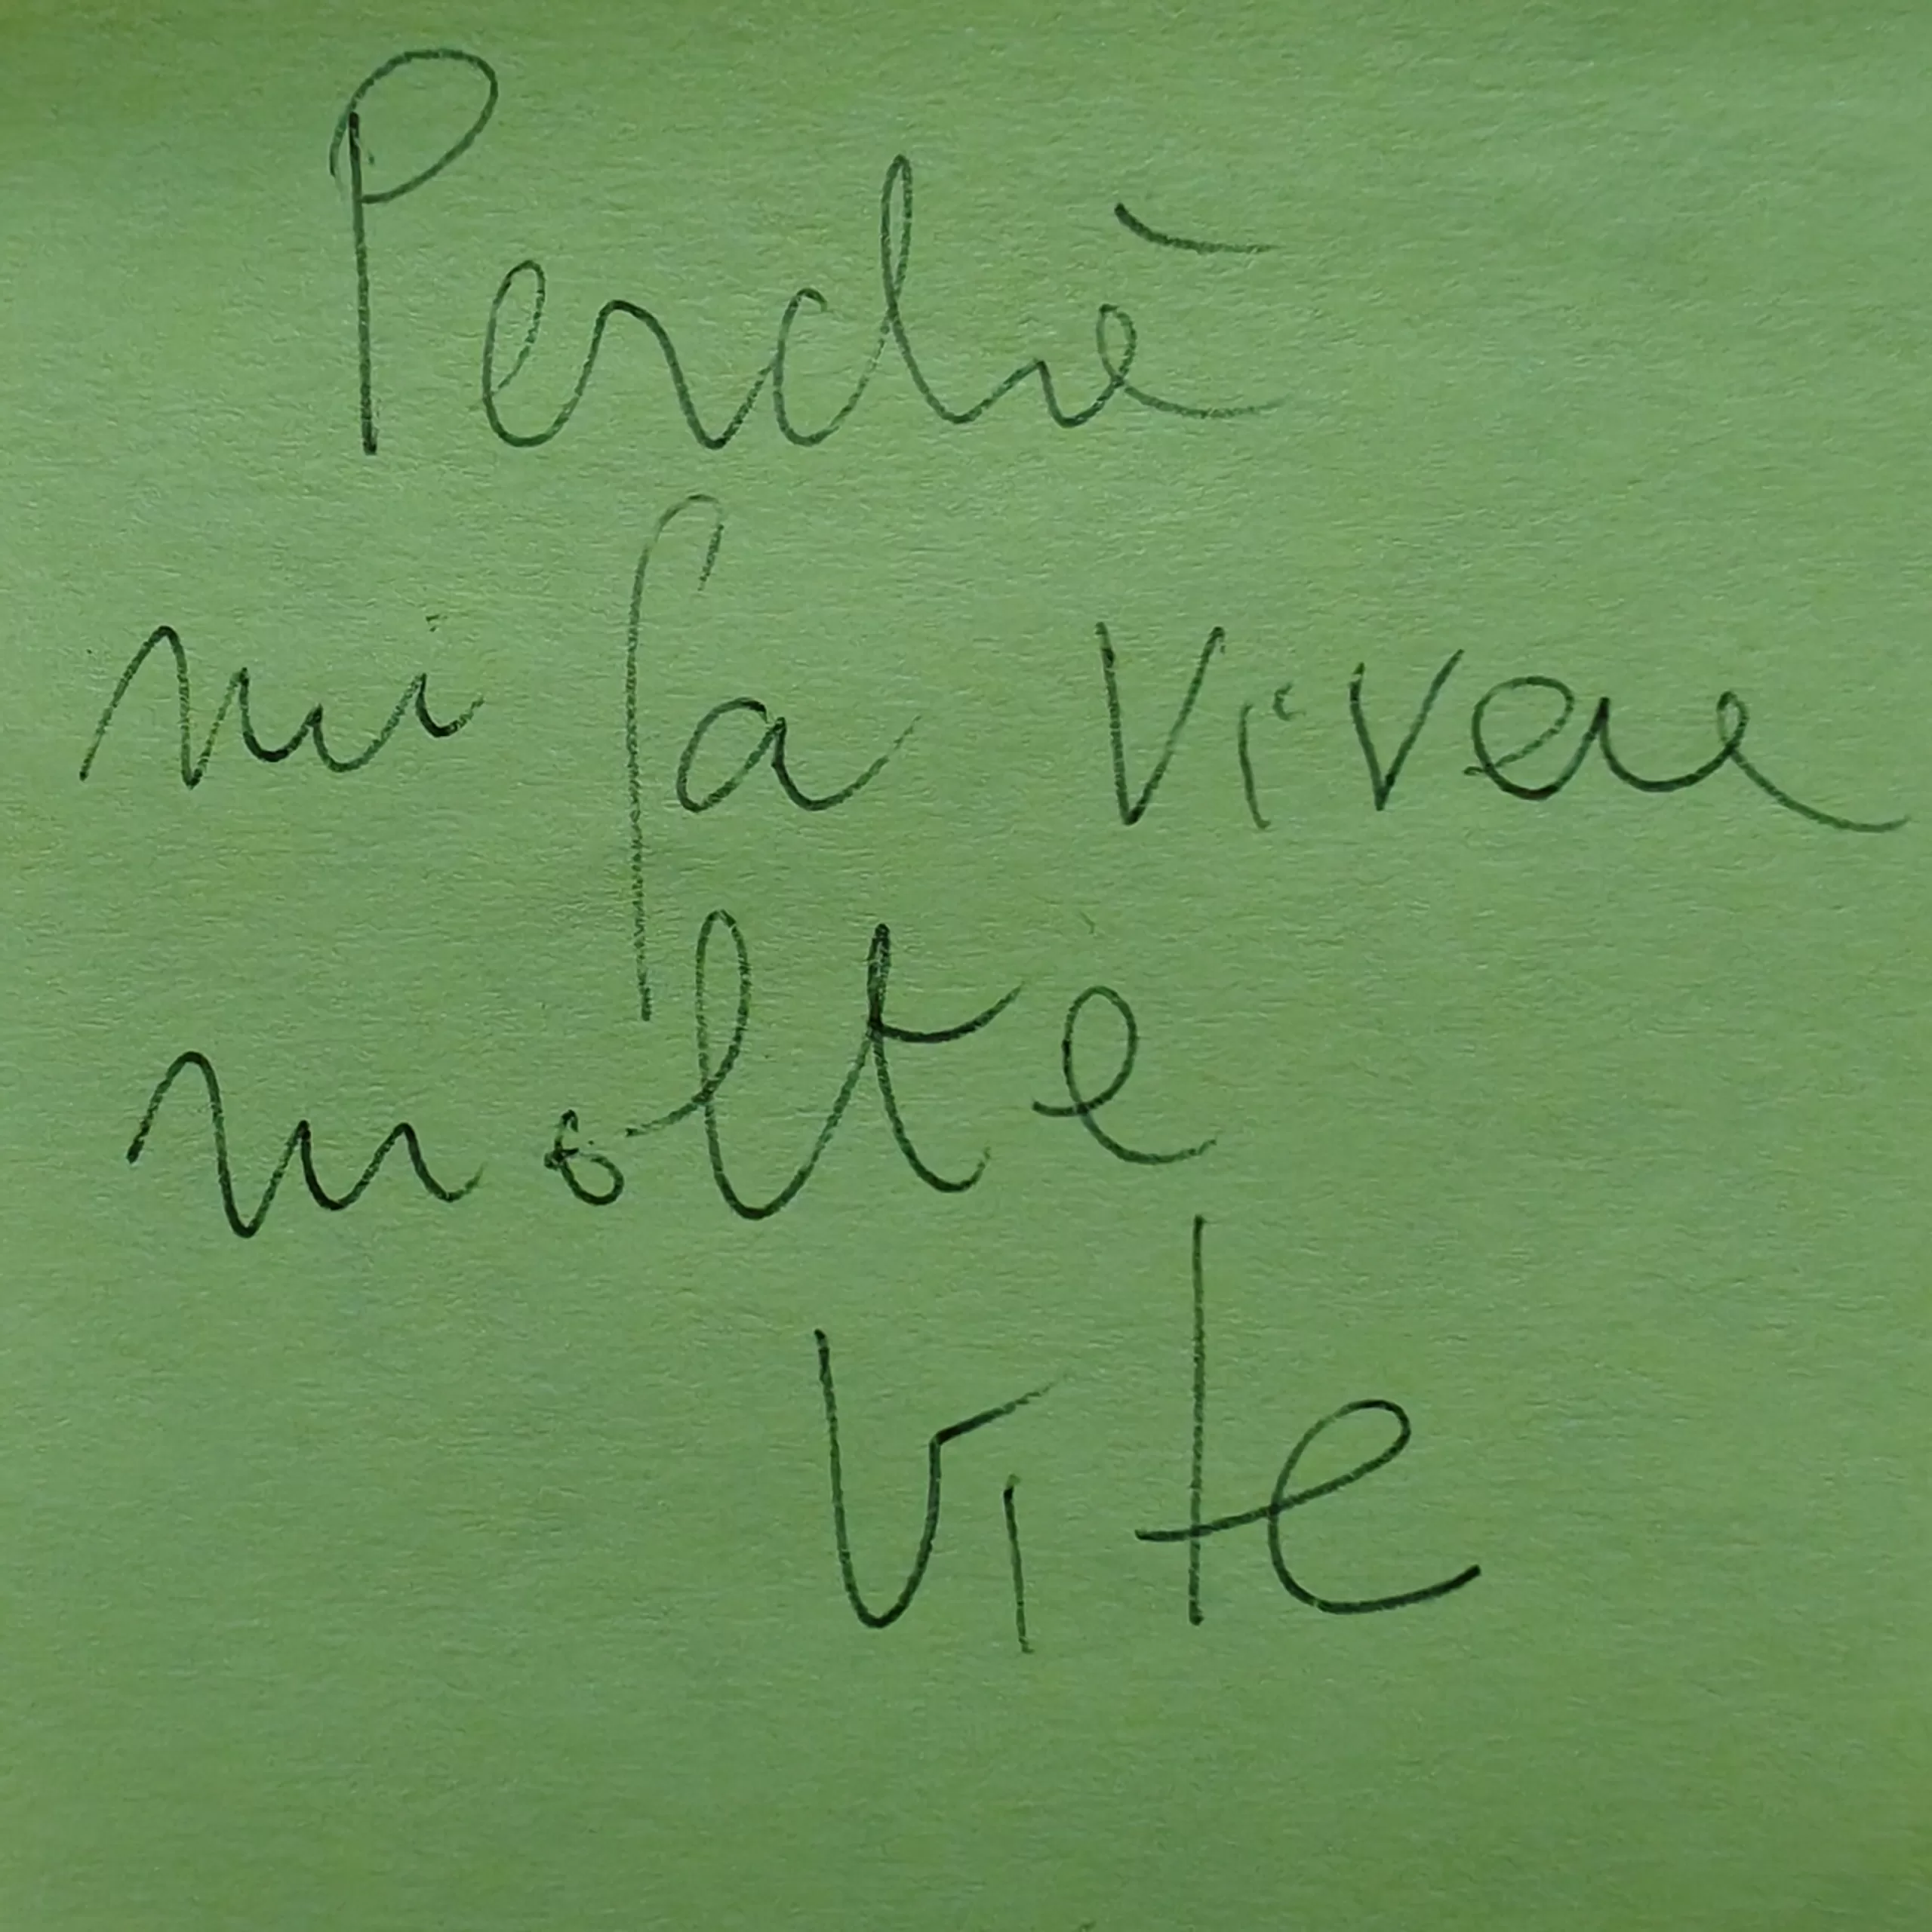 Perchè
mi fa vivere
molte
vite